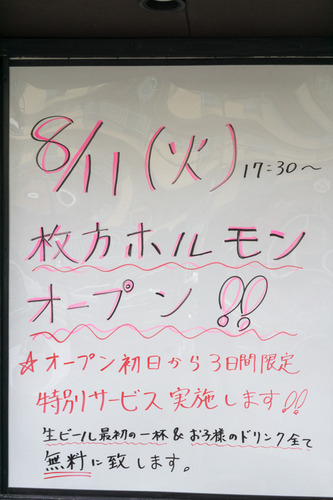 8/11(火)17:30~
枚方ホルモン
オープン!!
☆オープン初日から3日間限定
特別サービス実施します!!
生ビール最初の一杯&お子様のドリンク全て
無料に致します。